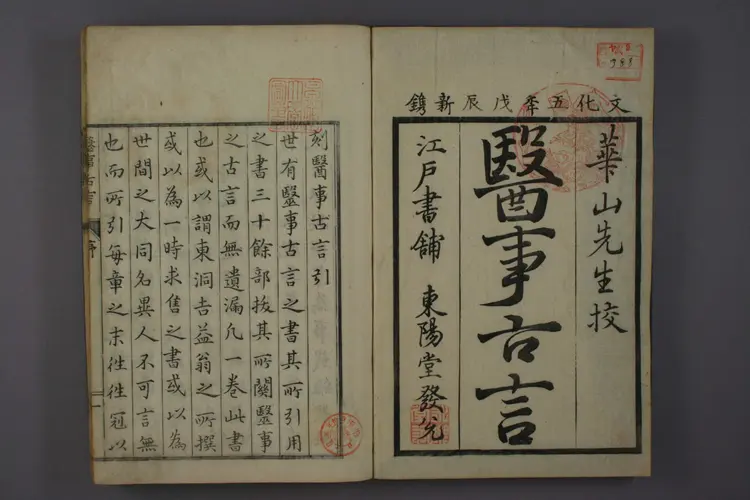 文化五年戊辰新鐫
華山先生挍
醫事古言
江戸書舖 東陽堂發兌
刻醫事古言引
世有毉事古言之書其所引用
之書三十餘部拔其所關毉事
之古言而無遺漏凡一卷此書
也或以謂東洞吉益翁之所撰
或以為一時求售之書或以為
世間之大同名異人不可言無
也而所引每章之末徃徃冠以
醫事古言 序 一